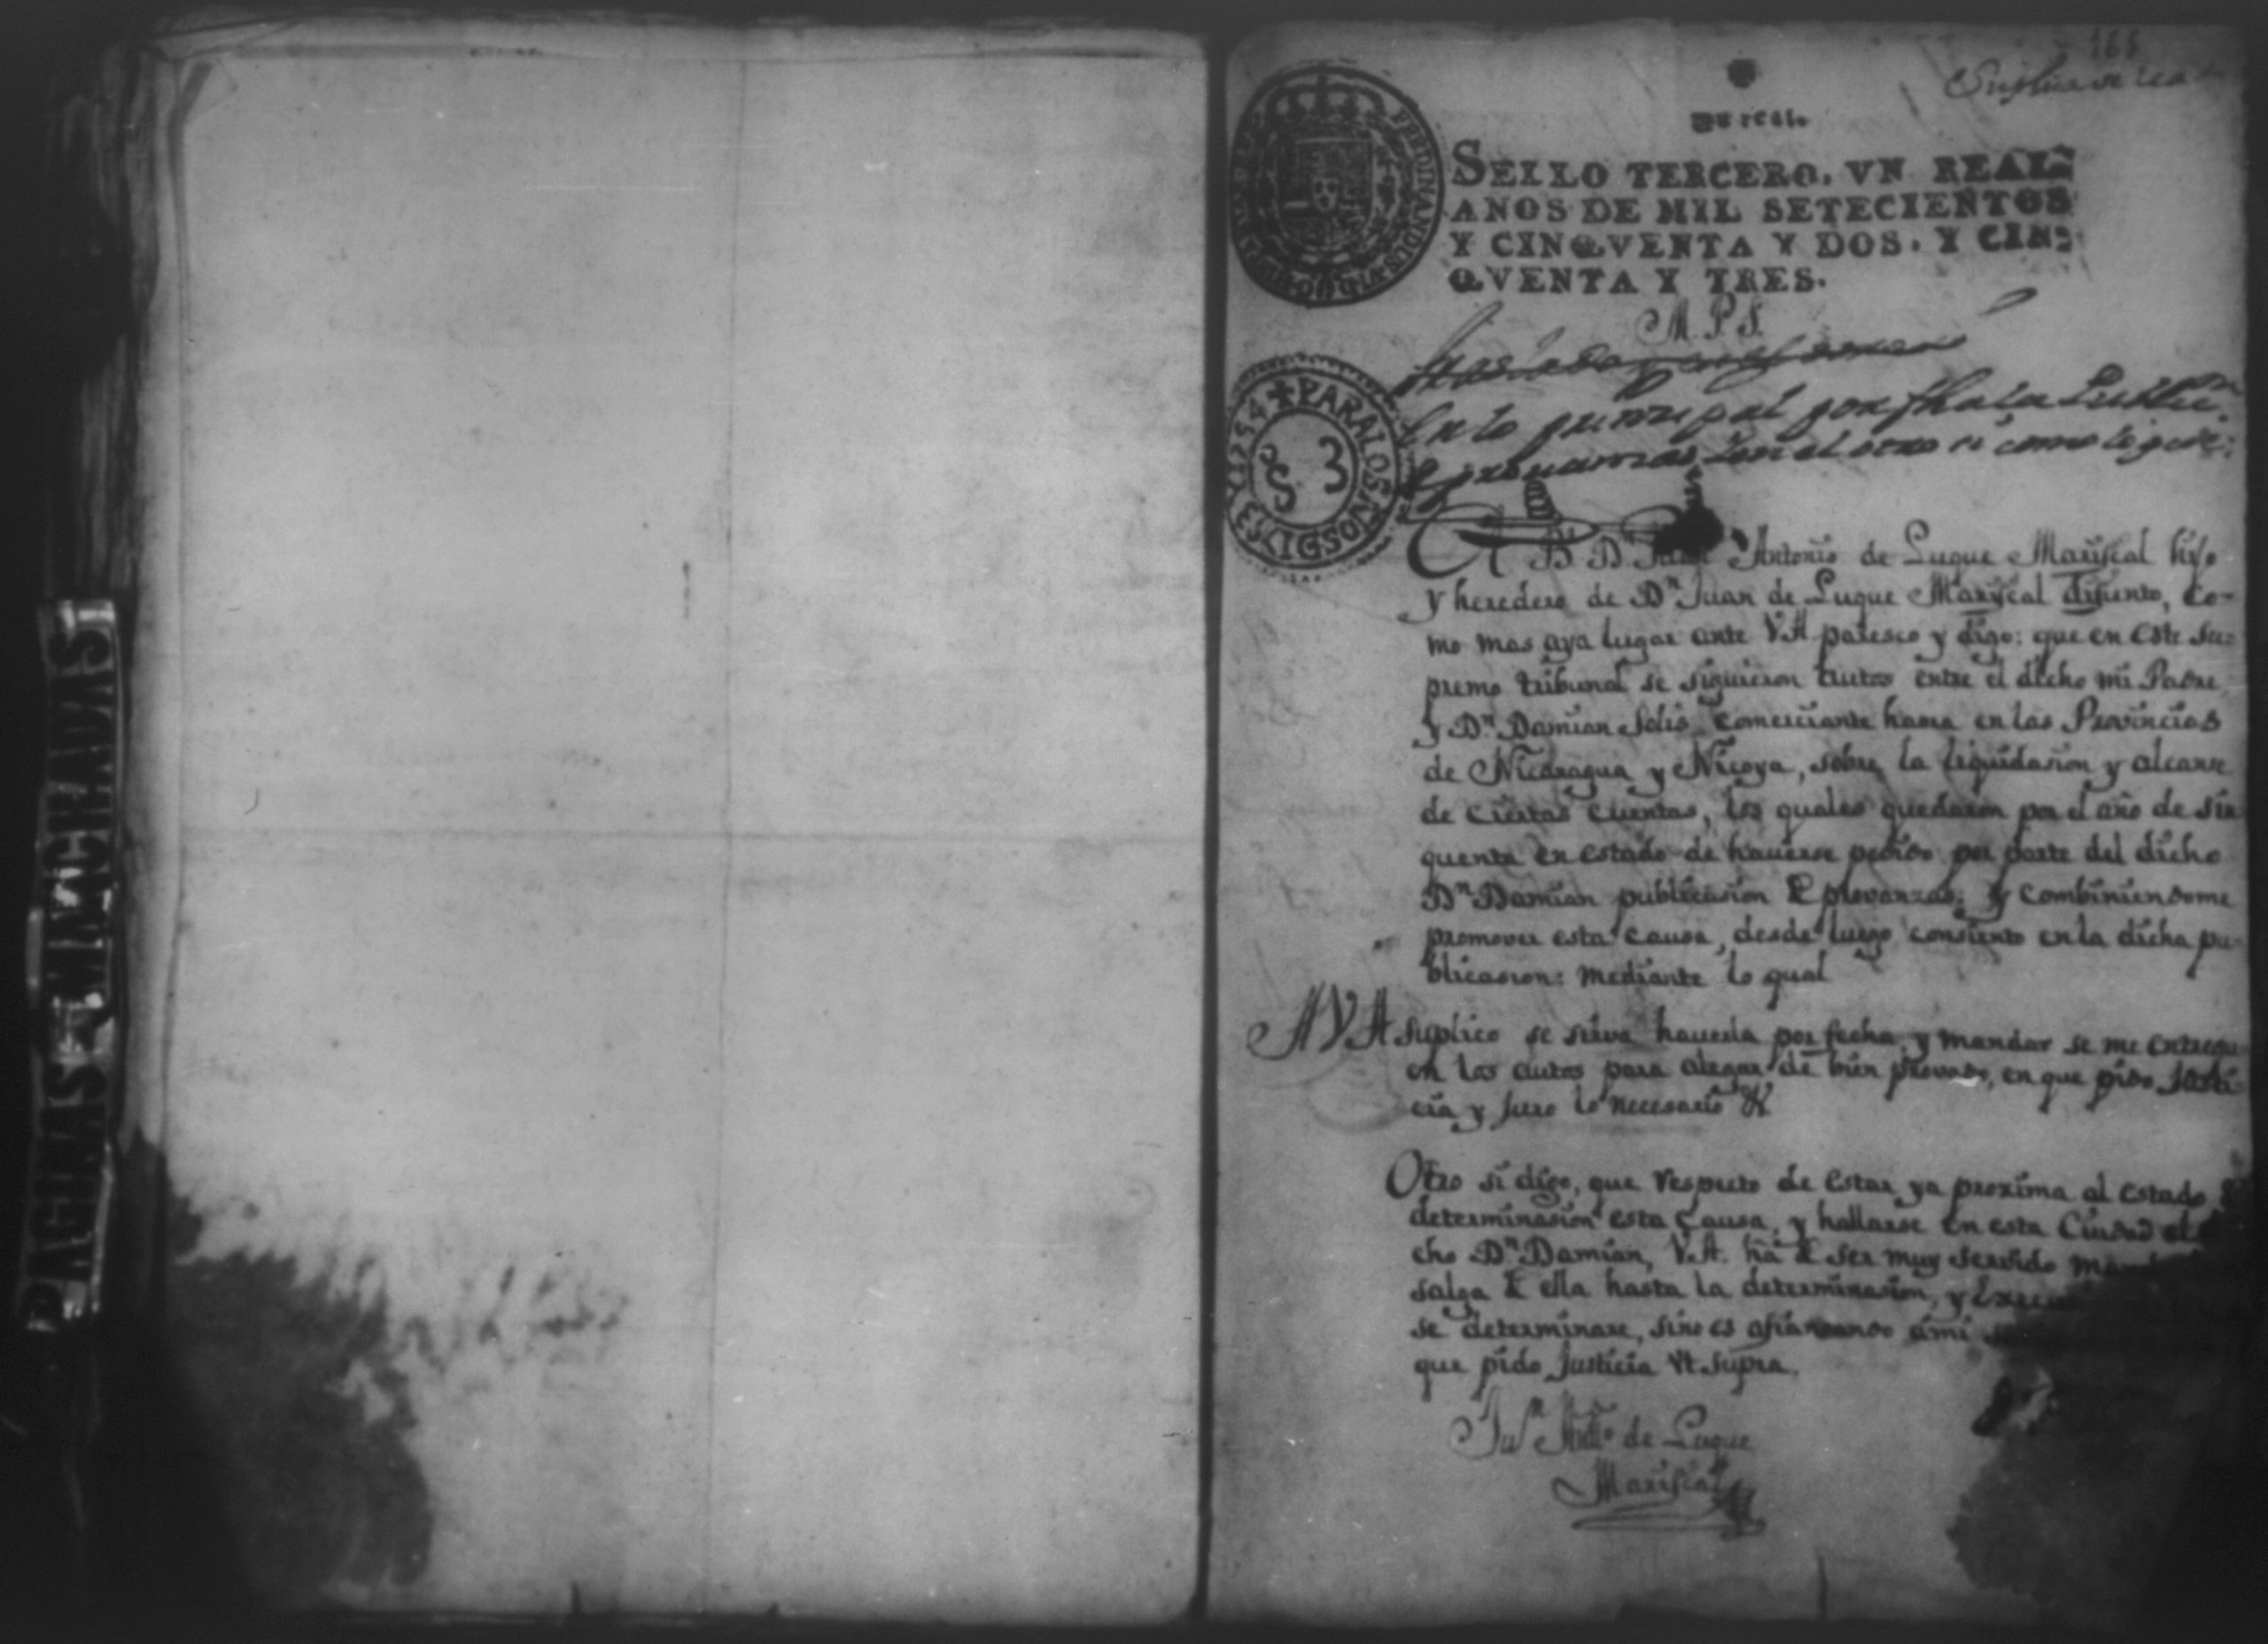 PAGINAS MICRADAS
166
Un real.
SELLO TERCERO. VN REAL.
AÑOS DE MIL SETECIENTOS
Y CINQVENTA Y DOS. Y CIN-
QVENTA Y TRES.
M. P. S.
PARA LOS AÑOS DE 1754
S 3
En lo principal por fha la Public.n
de provanzas y en el otro si como lo pide:
El B.r D. Juan Antonio de Luque Mariscal hijo
y heredero de D.n Juan de Luque Mariscal difunto, co-
mo mas aya lugar ante V.A. paresco y digo: que en este su-
premo tribunal se siguieron autos entre el dicho mi Padre,
y D.n Damian Solis comerciante en las Provincias
de Nicaragua y Nicoya, sobre la liquidasion y alcanse
de ciertas cuentas, los quales quedaron por el año de sin
quenta en estado de hauerse pedido por parte del dicho
D.n Damian publicasion de provanzas: y combiniendome
promover esta causa, desde luego consiento en la dicha pu-
blicasion: mediante lo qual
A V A suplico se sirva hauerla por fecha, y mandar se me entregu
en los autos para alegar de bien provado, en que pido Justi-
cia y juro lo necesario &
Otro si digo, que respecto de estar ya proxima al estado
determinasion esta causa, y hallarse en esta Ciudad el
cho D.n Damian, V.A. ha de ser muy servido
salga de ella hasta la determinasion, y
se determinare, sino es afiansando ami
que pido Justicia Vt. supra.
Ju.n Ant.o de Luque
Mariscal